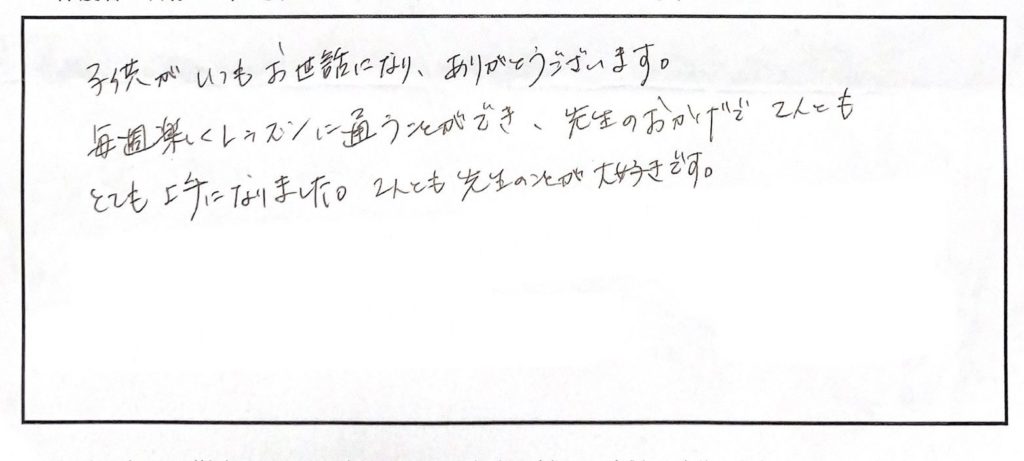 子供がいつもお世話になり、ありがとうございます。
毎週楽しくレッスンに通うことができ、先生のおかげで2人とも
とても上手になりました。2人とも先生のことが大好きです。